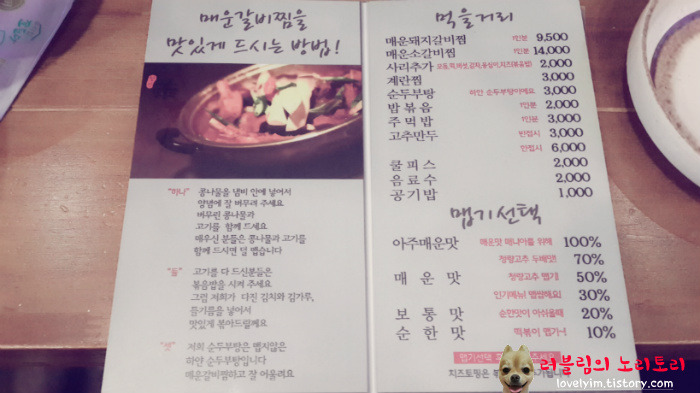 매운갈비찜을
맛있게 드시는 방법!
"하나" 콩나물을 냄비 안에 넣어서
양념에 잘 버무려 주세요
버무린 콩나물과
고기를 함께 드세요
매우신 분들은 콩나물과 고기를
함께 드시면 덜 맵습니다
"둘" 고기를 다 드신분들은
볶음밥을 시켜 주세요
그럼 저희가 다진 김치와 김가루,
들기름을 넣어서
맛있게 볶아드릴께요
"셋" 저희 순두부탕은 맵지않은
하얀 순두부탕입니다
매운갈비찜하고 잘 어울려요
먹을거리
매운돼지갈비찜 1인분 9,500
매운소갈비찜 1인분 14,000
사리추가 2,000
계란찜 3,000
순두부탕 하얀 순두부탕이에요 3,000
밥볶음 1인분 2,000
주먹밥 1인분 3,000
고추만두 반접시 3,000
한접시 6,000
쿨피스 2,000
음료수 2,000
공기밥 1,000
맵기선택
아주매운맛 매운맛 매니아를 위해 100%
청량고추 두배맛! 70%
매운맛 청량고추 맵기! 50%
인기메뉴! 맵쌉해요! 30%
보통맛 순한맛이 아쉬울때 20%
순한맛 떡볶이 맵기~! 10%
맵기선택
치즈토핑은
러블림의 노리토리
lovelyim.tistory.com